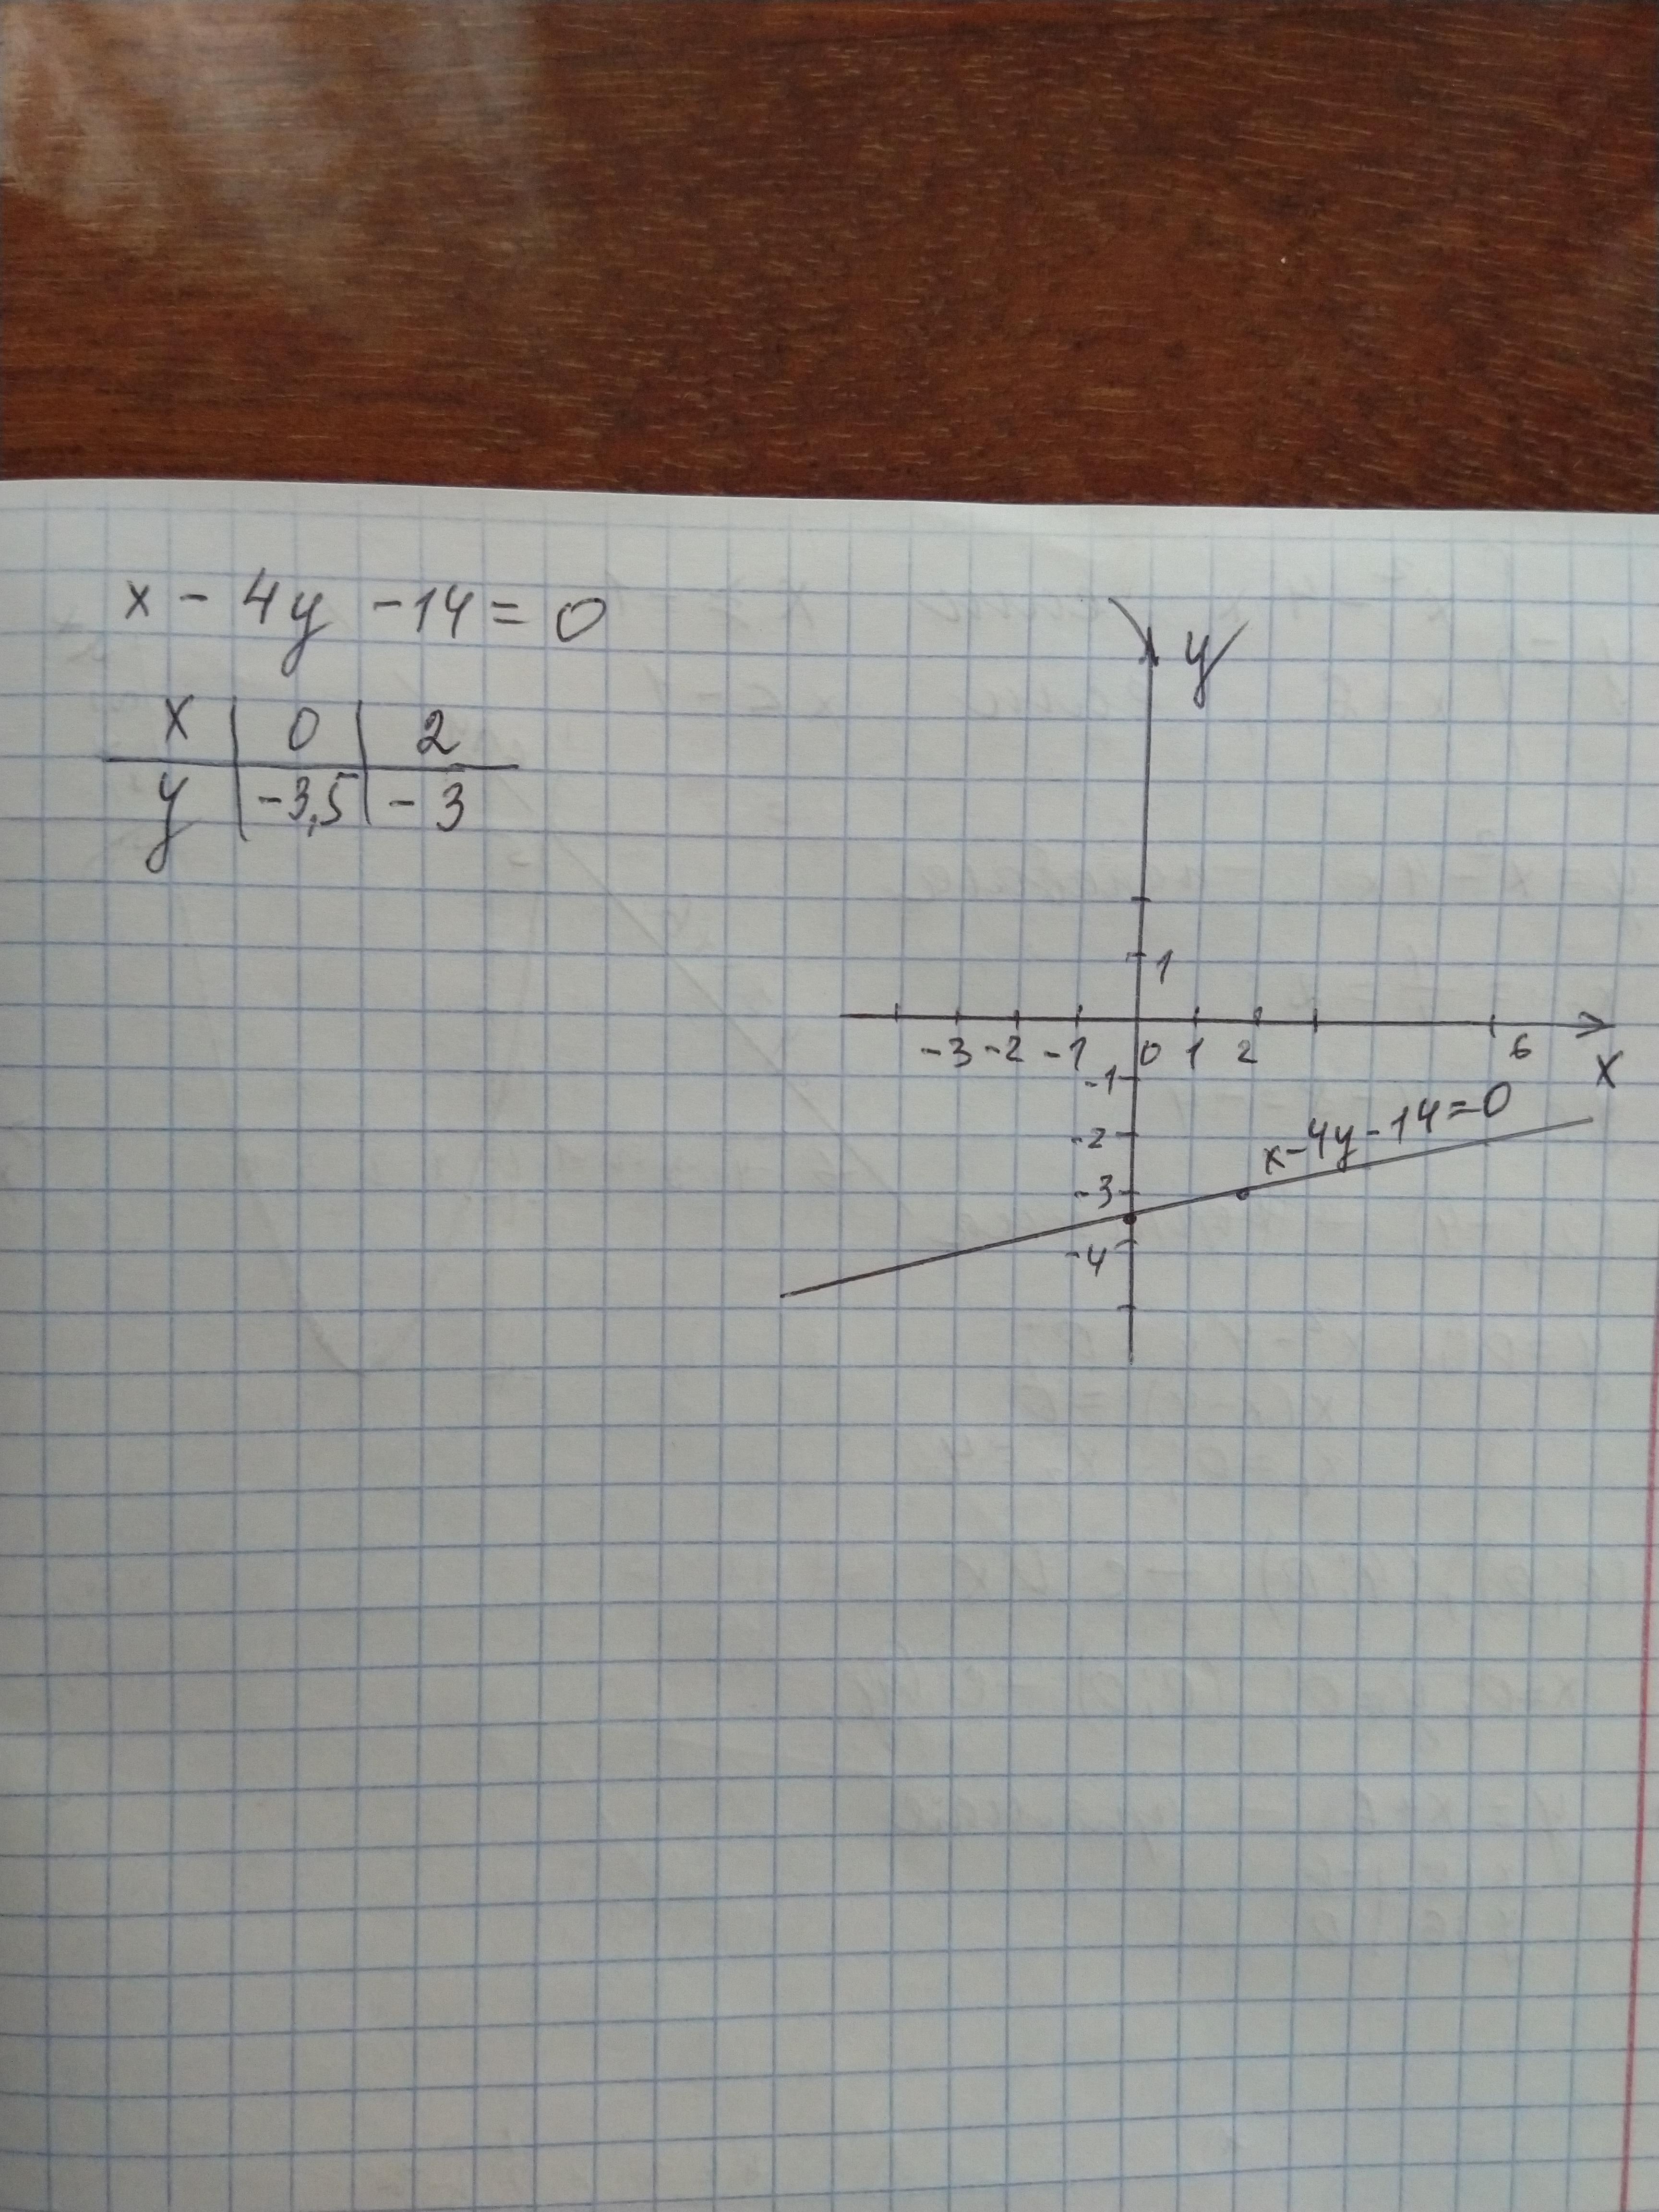 x - 4y - 14 = 0
x | 0 | 2
y | -3,5 | -3
y
1
-3 -2 -1 0 1 2 6
x
-1
x-4y-14=0
-2
-3
-4